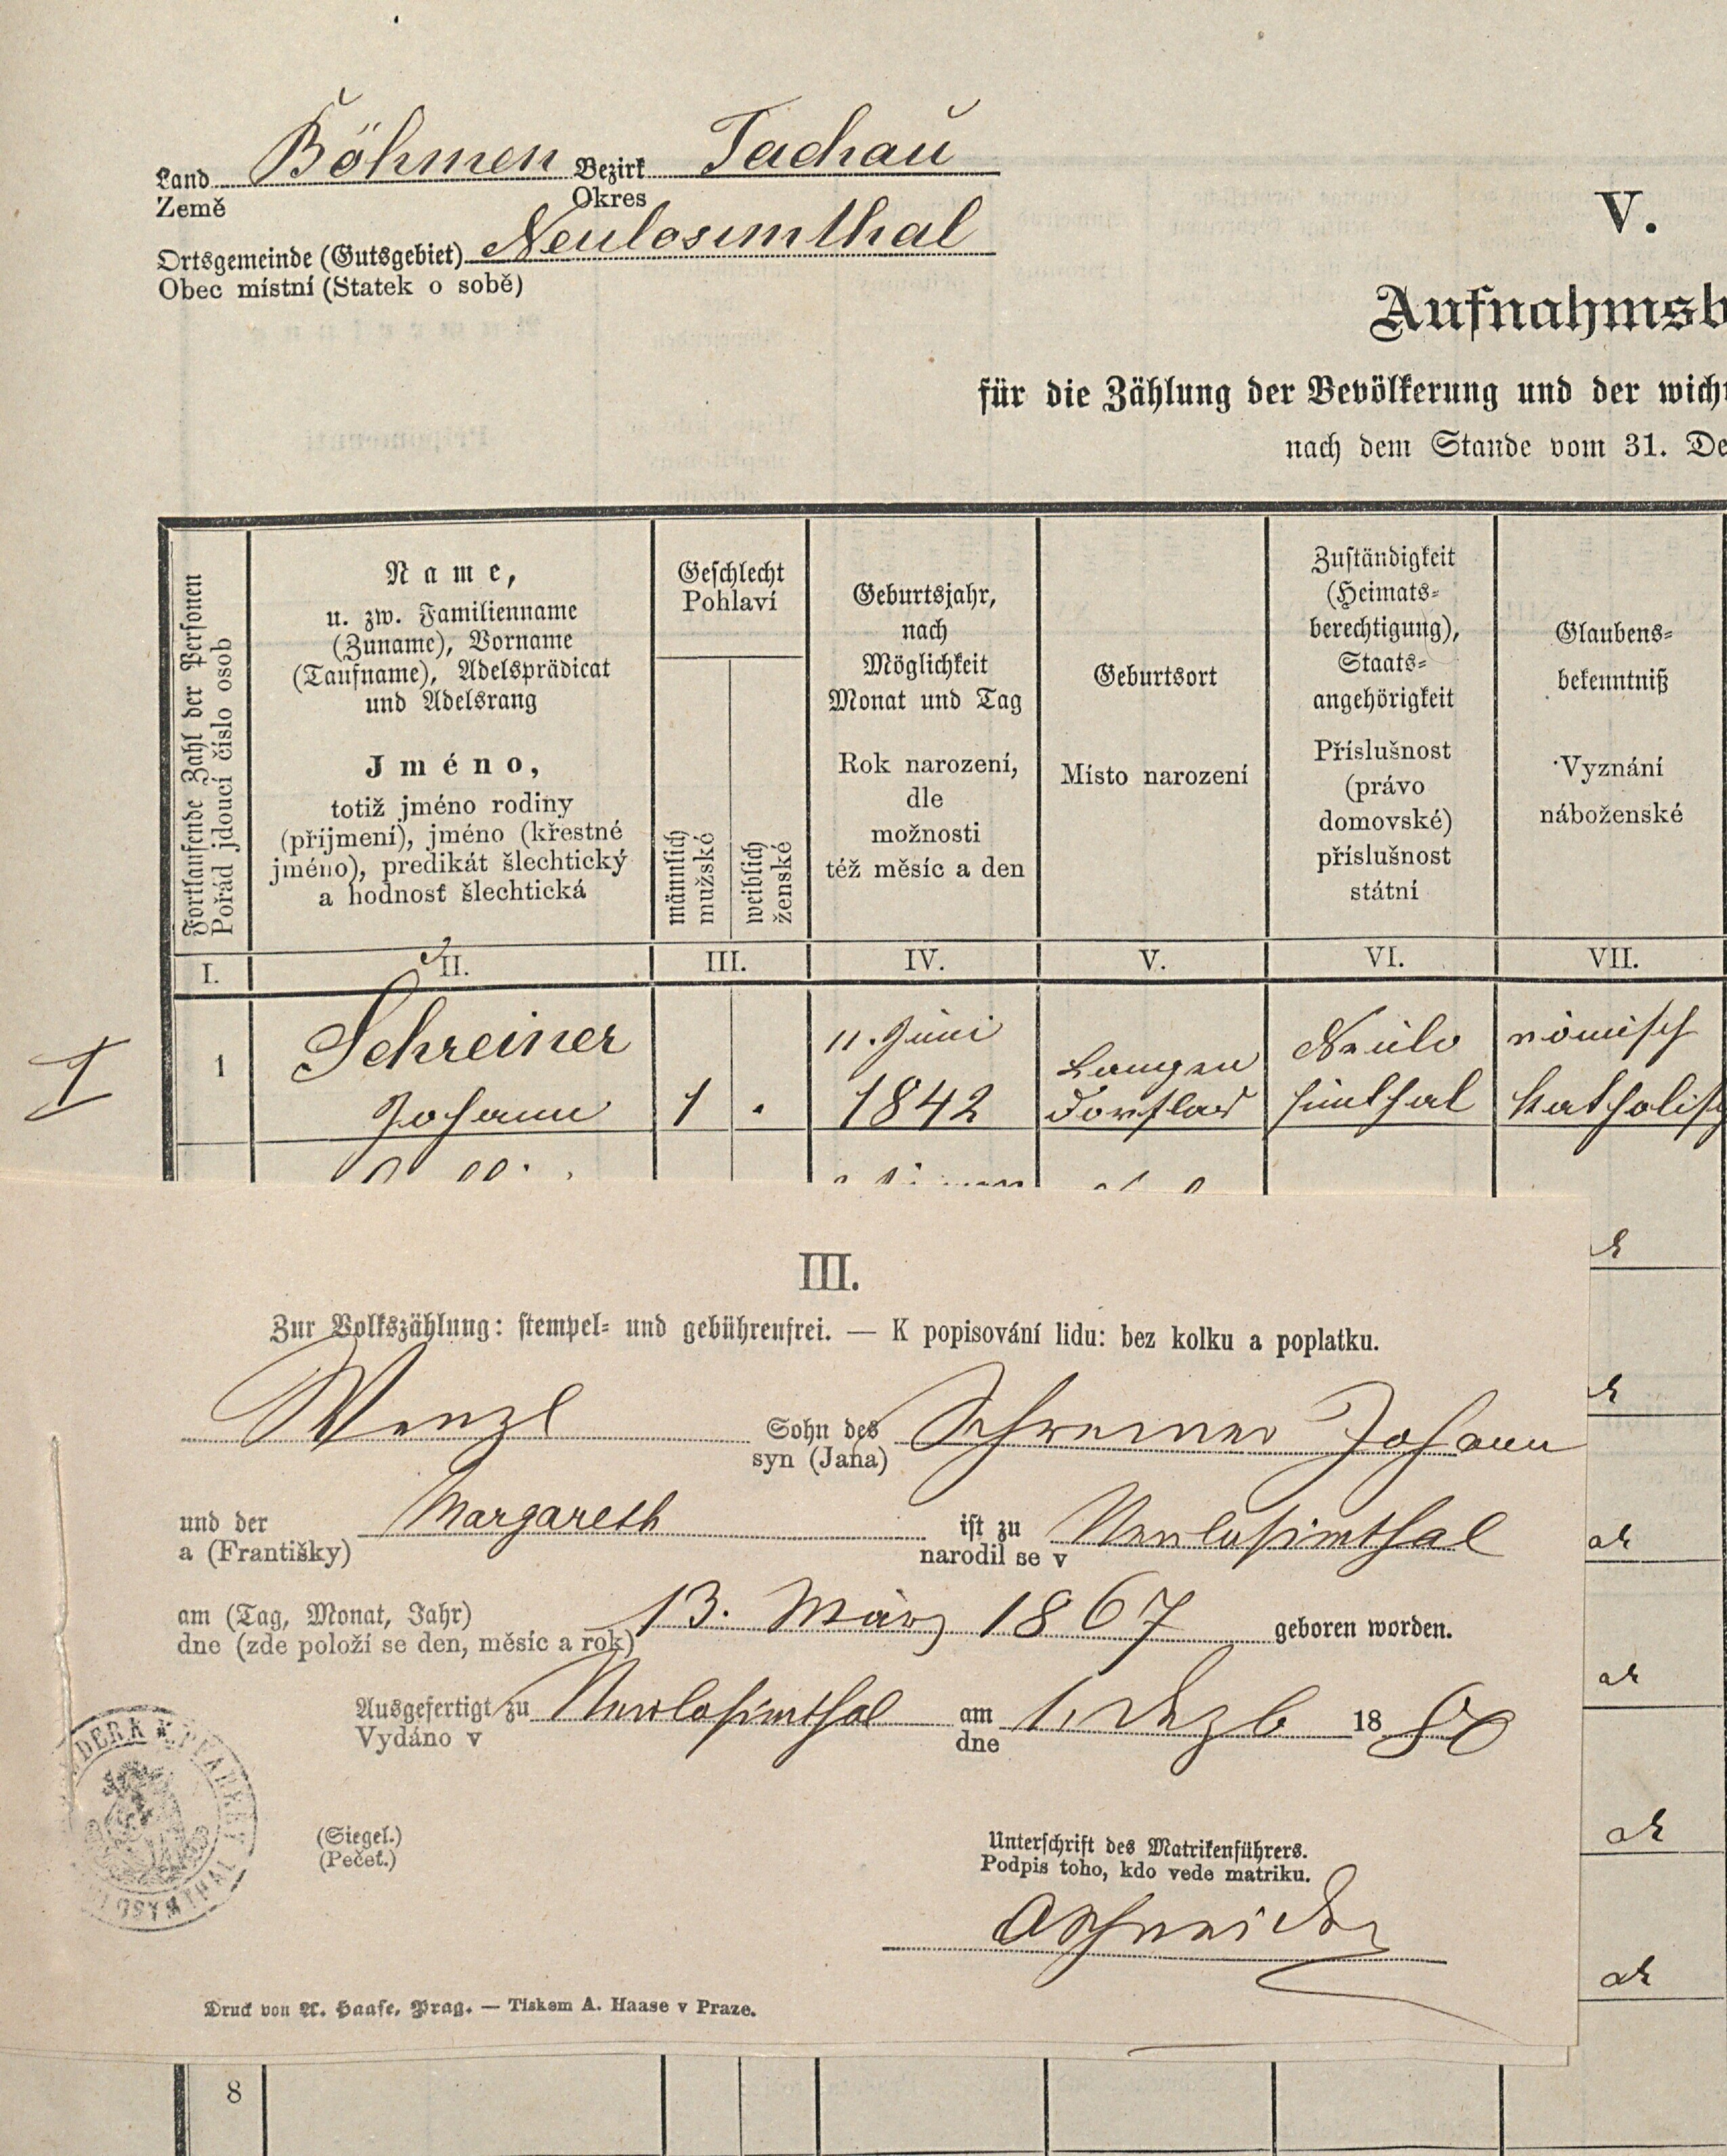 Land Böhmen Bezirk Tachau
Země Okres
Ortsgemeinde (Gutsgebiet) Neulosimthal
Obec místní (Statek o sobě)
V.
Aufnahmsb
für die Zählung der Bevölkerung und der wich
nach dem Stande vom 31. De
Fortlaufende Zahl der Personen
Pořád jdoucí číslo osob
Name,
u. zw. Familienname
(Zuname), Vorname
(Taufname), Adelsprädicat
und Adelsrang
Jméno,
totiž jméno rodiny
(příjmení), jméno (křestné
jméno), predikát šlechtický
a hodnosť šlechtická
Geschlecht
Pohlaví
männlich
mužské
weiblich
ženské
Geburtsjahr,
nach
Möglichkeit
Monat und Tag
Rok narození,
dle
možnosti
též měsíc a den
Geburtsort
Místo narození
Zuständigkeit
(Heimats-
berechtigung),
Staats-
angehörigkeit
Příslušnost
(právo
domovské)
příslušnost
státní
Glaubens-
bekenntniß
Vyznání
náboženské
I. II. III. IV. V. VI. VII.
1 Schreiner 11. Juni Langen Neulo römisch
1 Johann 1 . 1842 dorflas simthal katholisch
III.
Zur Volkszählung: stempel- und gebührenfrei. — K popisování lidu: bez kolku a poplatku.
Wenzl Sohn des Schreiner Johann
syn (Jana)
und der Margareth ist zu Neulosimthal
a (Františky) narodil se v
am (Tag, Monat, Jahr) 13. März 1867 geboren worden.
dne (zde položí se den, měsíc a rok)
Ausgefertigt zu Neulosimthal am 1. Dezb 1880
Vydáno v dne
(Siegel.)
(Pečeť.)
Unterschrift des Matrikenführers.
Podpis toho, kdo vede matriku.
Druck von A. Haase, Prag. — Tiskem A. Haase v Praze.
8